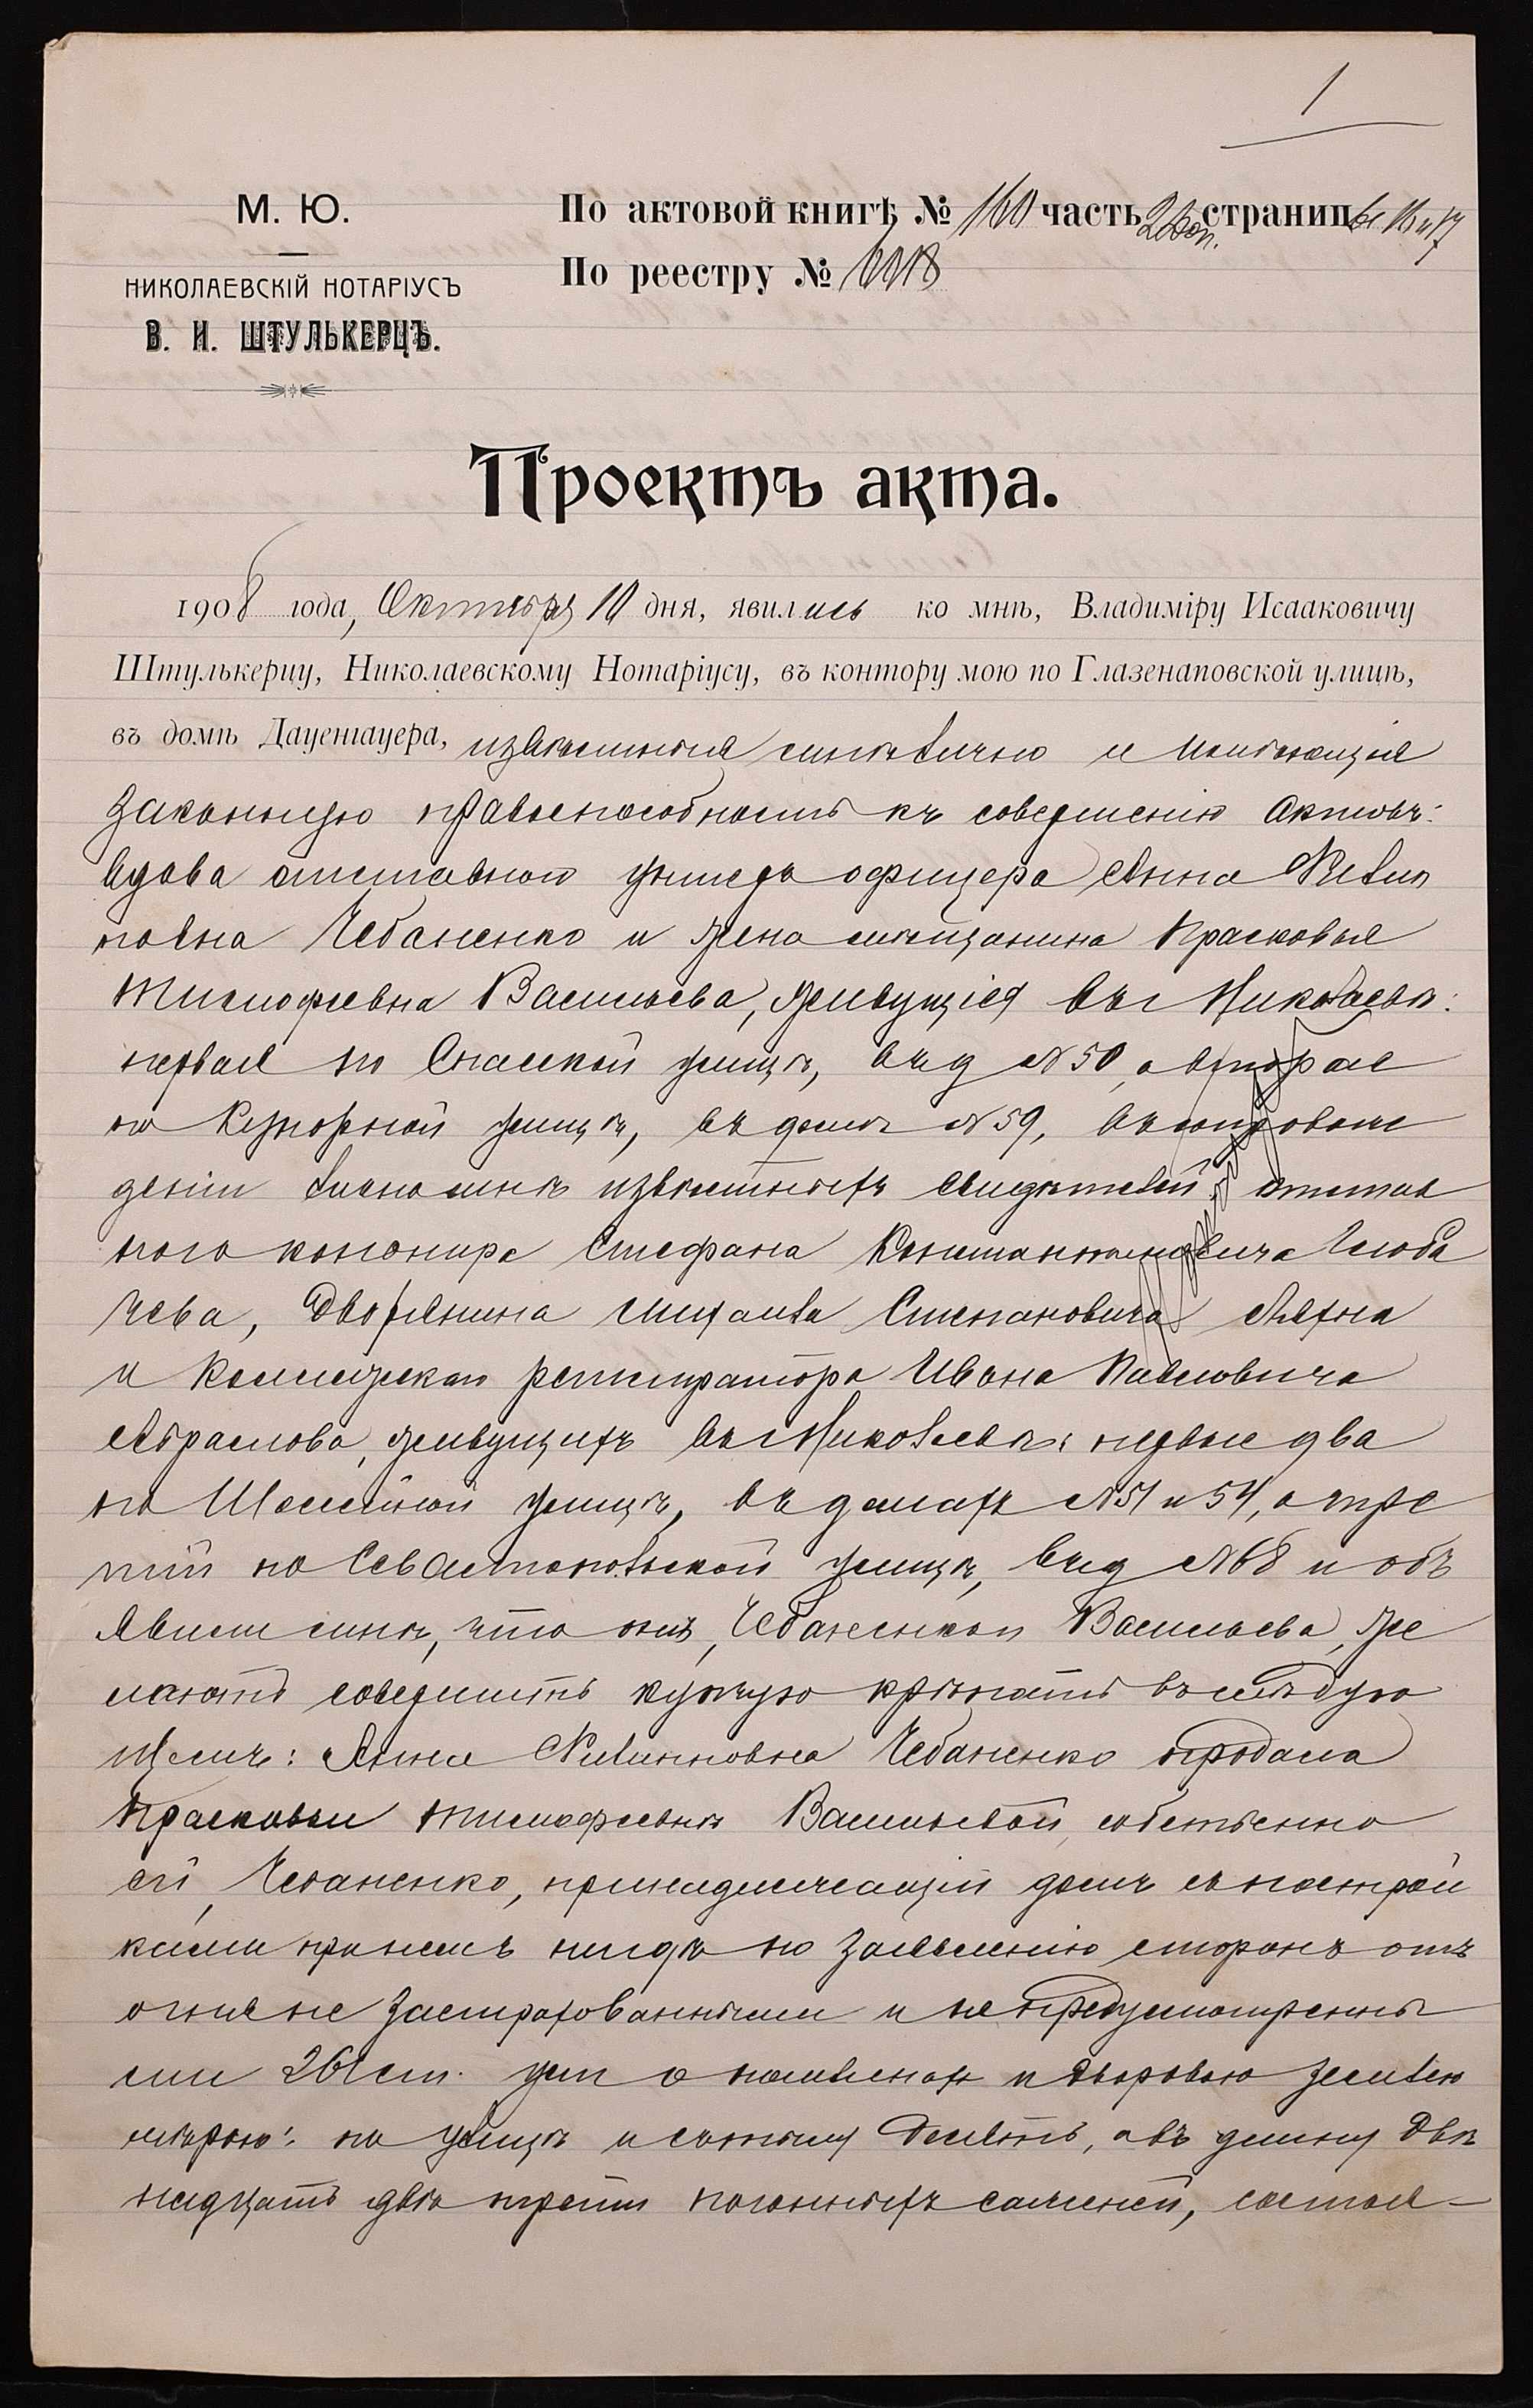 1
М. Ю.
НИКОЛАЕВСКІЙ НОТАРІУСЪ
В. И. ШТУЛЬКЕРЦЪ.
По актовой книгѣ № 160 часть 2 доп. страницы 16 и 17
По реестру №
Проектъ акта.
1908 года, Октября 10 дня, явились ко мнѣ, Владиміру Исааковичу
Штулькерцу, Николаевскому Нотаріусу, въ контору мою по Глазенаповской улицѣ,
въ домѣ Дауенгауера, извѣстныя мнѣ лично и имѣющія
законную правоспособность къ совершенію актовъ:
вдова отставного унтеръ офицера Анна Филип
повна Чебаненко и жена мѣщанина Прасковья
Тимофеевна Васильева, живущія въ г Николаевѣ:
первая по Спасской улицѣ, въ д № 50, а вторая
по Кузнорной улицѣ, въ домѣ № 59, въ сопровож
деніи лично мнѣ извѣстныхъ свидѣтелей: отстав
ного канонира Стефана Константиновича
чева, Дворянина Михаила Степановича Ляхна
и Коллежскаго регистратора Ивана Павловича
Абрамова, живущихъ въ г Николаевѣ: первые два
по Шоссейной улицѣ, въ домахъ № 51 и 54, а тре
тій по Севастопольской улицѣ, въ д № 68 и объ
явили мнѣ, что онѣ, Чебаненко и Васильева, же
лаютъ совершить купчую крѣпость въ слѣдую
щемъ: Анна Филипповна Чебаненко продала
Прасковьи Тимофеевнѣ Васильевой, собственно
ей, Чебаненко, принадлежащій домъ съ построй
ками нигдѣ по заявленію сторонъ отъ
огня не застрахованными и не предусмотренны
ми 261 ст. уст о пошлинахъ и дворовою землею
мѣрою: по улицѣ и съ тылу десять, а въ длину двѣ
надцать двѣ трети погонныхъ саженей, состоя-